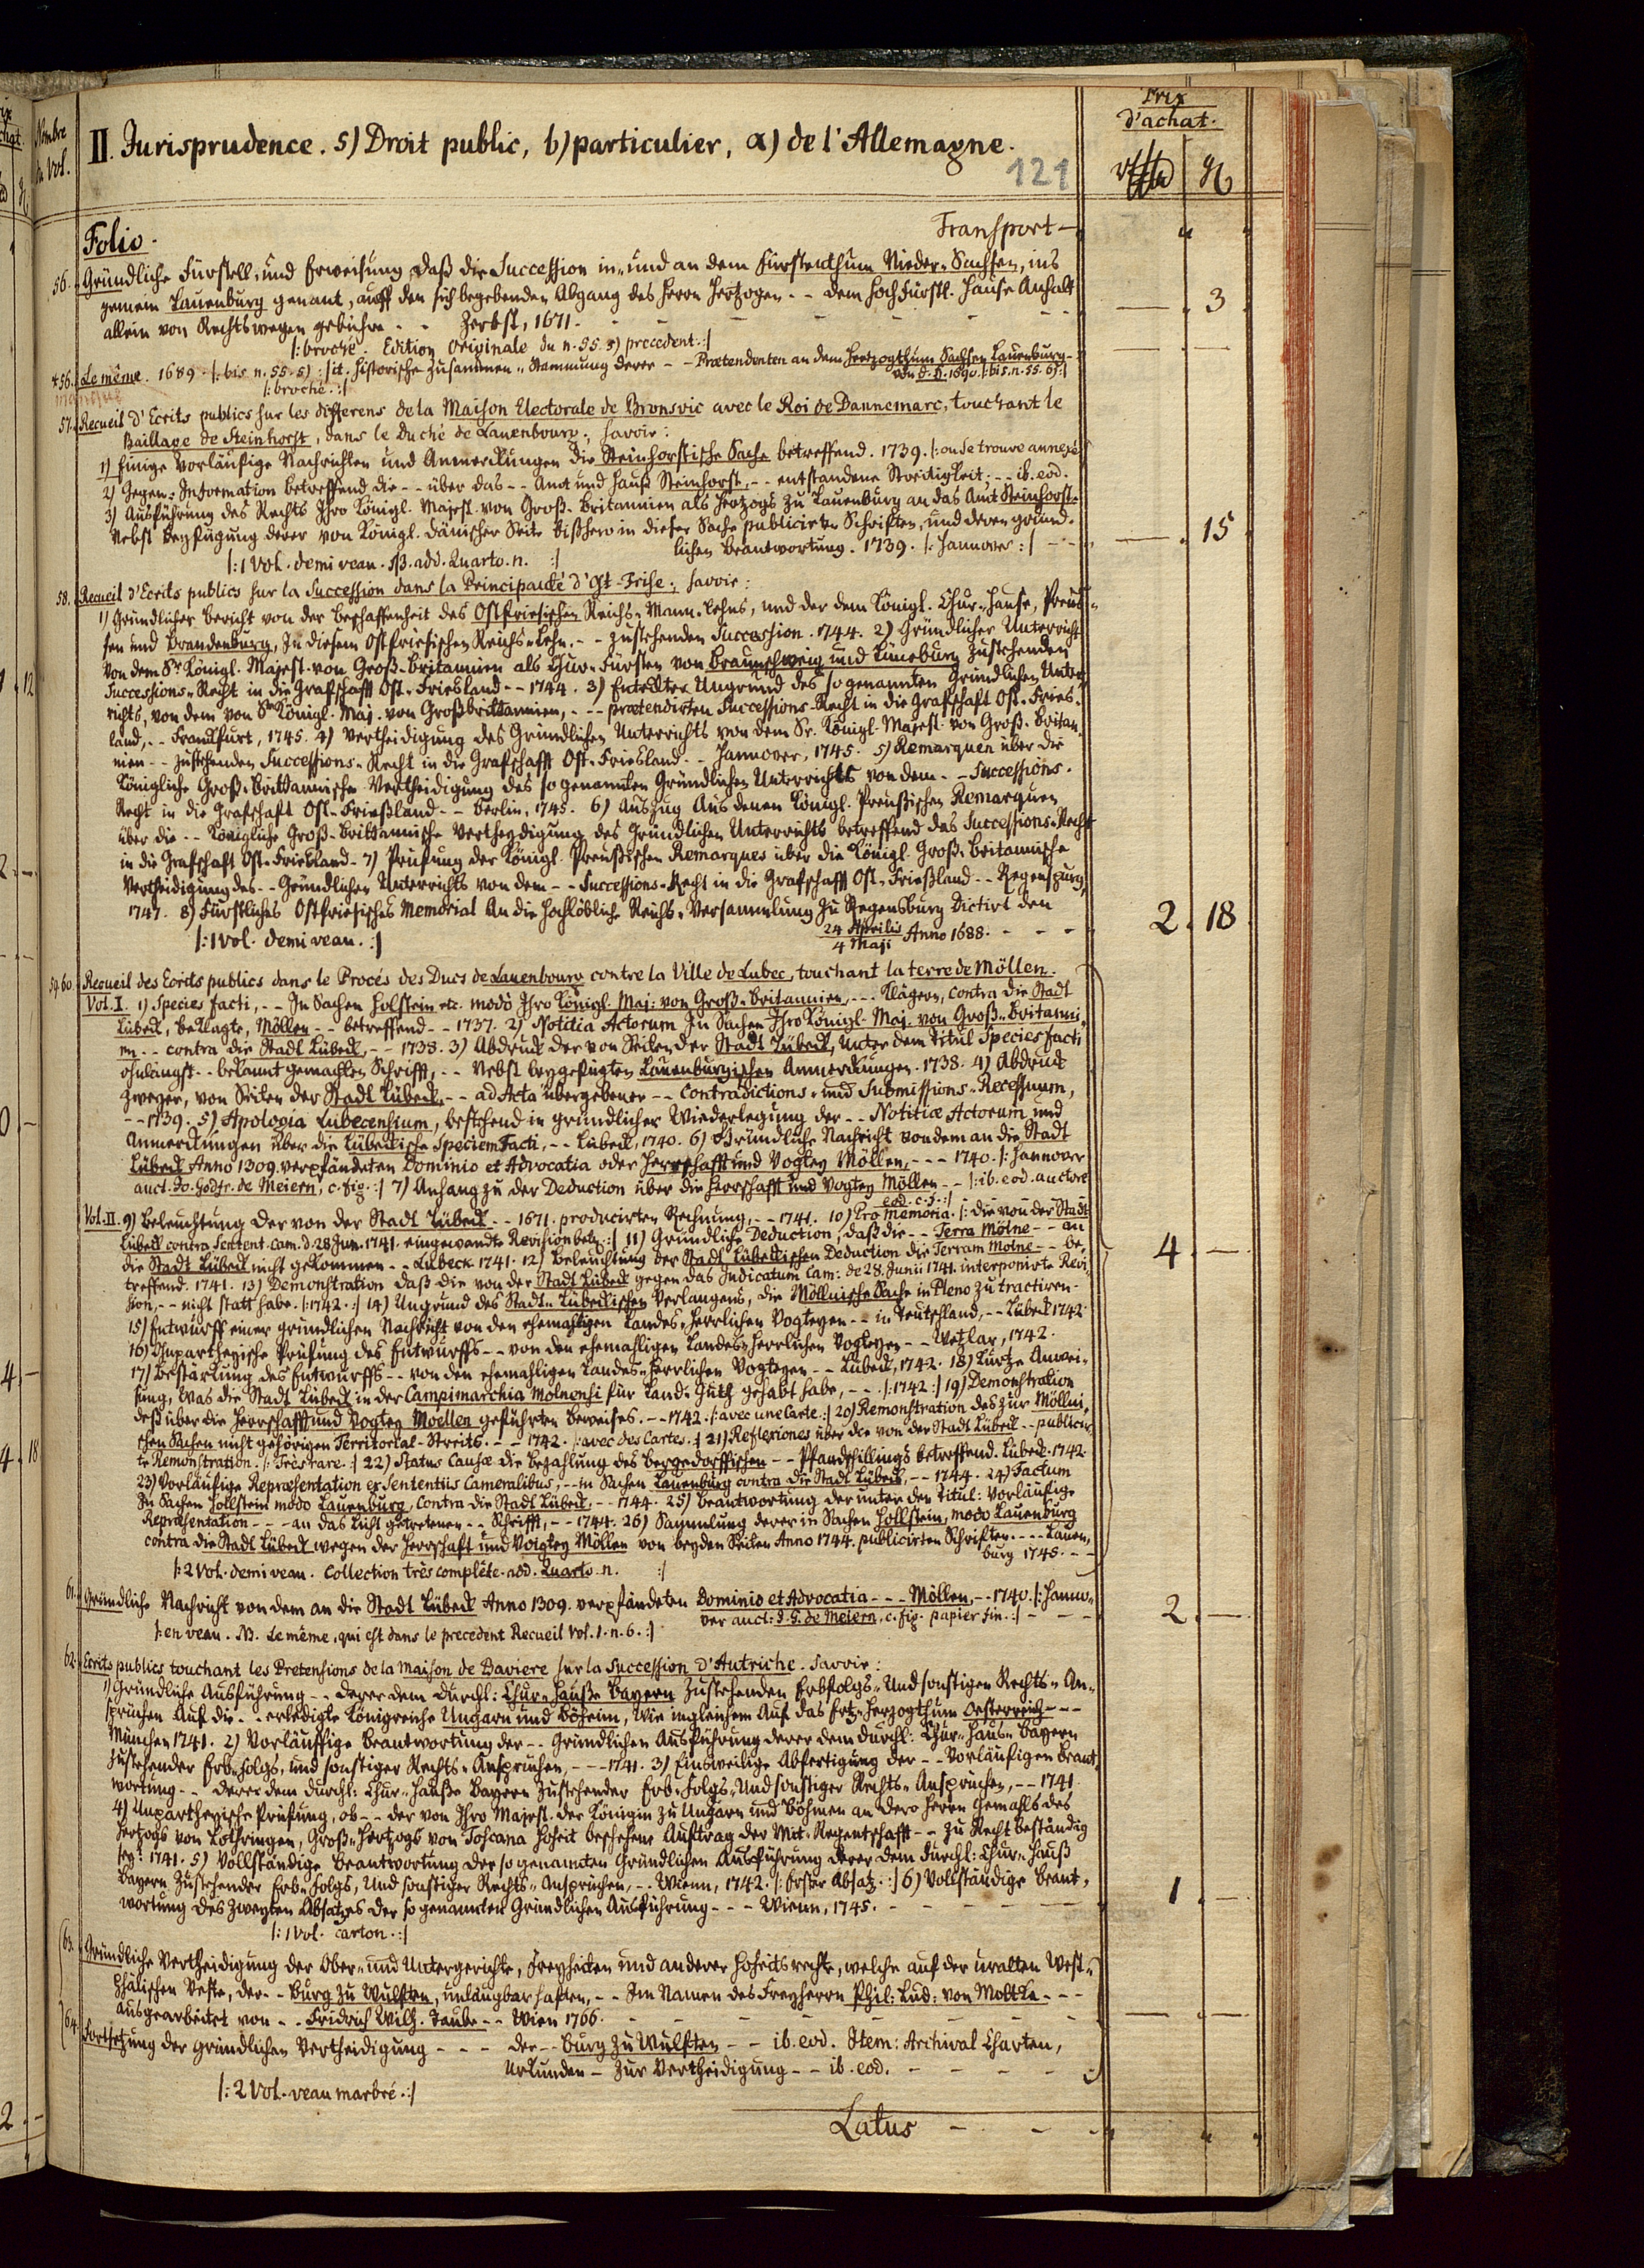 Nombre
du Vol.
II. Jurisprudence. 5) Droit public, b) particulier, α) de l'Allemagne.
121
Prix
d'achat.
Folio.
Transport —
56. Gründliche Fürstell- und Erweisung daß die Succession in- und an dem Fürstenthum Nieder-Sachsen, ins
gemein Lauenburg genant, auff den sich begebenden Abgang des Herrn Hertzogen - - dem Hochfürstl. Hause Anhalt
allein von Rechtswegen gebühre - - Zerbst, 1671. — 3
|: broché. Edition Originale du n. 55. 3) precedent. :|
*56. Le même. 1689. |: bis n. 55. 5) :| it. Historische Zusammen-Stammung derer - - Praetendenten an dem Hertzogthum Sachsen Lauenburg -
von d. H. 1690. |: bis. n. 55. 6) :|
|: broché. :|
manque
57. Recueil d'Ecrits publics sur les differens de la Maison Electorale de Bronsvic avec le Roi de Dannemarc, touchant le
Baillage de Steinhorst, dans le Duché de Lauenbourg; savoir:
1) Einige Vorläufige Nachrichten und Anmerckungen die Steinhorstische Sache betreffend. 1739. |: on se trouve annexé
2) Gegen-Information betreffend die - - über das - - Amt und Hauß Steinhorst, - - entstandene Streitigkeit; - - ib. eod.
3) Ausführung des Rechts Ihro Königl. Majest. von Groß-Britannien als Hertzogs zu Lauenburg an das Amt Steinhorst.
Nebst Beyfügung derer von Königl. Dänischer Seite bißhero in dieser Sache publicirten Schriften, und deren gründ-
lichen Beantwortung. 1739. |: Hannover :| - - — 15
|: 1 Vol. demi veau. NB. add. Quarto. n. :|
58. Recueil d'Ecrits publics sur la Succession dans la Principauté d'Ost-Frise; savoir:
1) Gründlicher Bericht von der Beschaffenheit des Ostfriesischen Reichs-Mann-Lehns, und der dem Königl. Chur-Hause, Preus-
sen und Brandenburg, In diesem Ostfriesischen Reichs-Lehn - - zustehenden Succession. 1744. 2) Gründlicher Unterricht
Von dem Sr Königl. Majest. von Groß-Britannien als Chur-Fürsten von Braunschweig und Lüneburg zustehenden
Successions-Recht in die Grafschafft Ost-Friesland - - 1744. 3) Entdeckter Ungrund des so genannten Gründlichen Unter-
richts, von dem von Sr Königl. Maj. von Großbrittannien, - - - praetendirten Successions-Recht in die Grafschaft Ost-Fries-
land, - - Franckfurt, 1745. 4) Vertheidigung des Gründlichen Unterrichts von dem Sr. Königl. Majest. von Groß-Britan-
nien - - zustehenden Successions-Recht in die Grafschafft Ost-Friesland - - Hannover, 1745. 5) Remarquen über die
Königliche Groß-Brittannische Vertheidigung des so genannten Gründlichen Unterrichts von dem - - Successions-
Recht in die Grafschaft Ost-Frießland - - Berlin, 1745. 6) Auszug Aus denen Königl. Preußischen Remarquen
über die - - Königliche Groß-Brittannische Vertheydigung des Gründlichen Unterrichts betreffend das Successions-Recht
in die Grafschaft Ost-Friesland - 7) Prüfung der Königl. Preußischen Remarques über die Königl. Groß-Britannische
Vertheidigung des - - Gründlichen Unterrichts von dem - - Successions-Recht in die Grafschafft Ost-Frießland - - Regenspurg,
1747. 8) Fürstliches Ostfriesisches Memorial An die Hochlöbliche Reichs-Versammlung zu Regensburg Dictirt den
24 Aprilis / 4 Maji Anno 1688. - - - 2. 18
|: 1 Vol. demi veau. :|
59. 60. Recueil des Ecrits publics dans le Procés des Ducs de Lauenbourg contre la Ville de Lubec, touchant la terre de Möllen.
Vol. I. 1) Species facti, - - In Sachen Holstein etc. modò Ihro Königl. Maj: von Groß-Britannien, - - - Klägern, contra die Stadt
Lübeck, Beklagte, Möllen - - betreffend - - 1737. 2) Notitia Actorum In Sachen Ihro Königl. Maj. von Groß-Britanni-
en - - contra die Stadt Lübeck, - - 1738. 3) Abdruck der von Seiten der Stadt Lübeck, Unter dem Titul Species facti
ohnlängst - - bekannt gemachten Schrifft, - - Nebst beygefügten Lauenburgischen Anmerckungen. 1738. 4) Abdruck
Zweyer, von Seiten der Stadt Lübeck, - - ad Acta übergebener - - Contradictions- und Submissions-Recessuum,
- - 1739. 5) Apologia Lubecensium, bestehend in gründlicher Wiederlegung der - - Notitiae Actorum und
Anmerckungen über die Lübeckische Speciem Facti, - - Lübeck, 1740. 6) Gründliche Nachricht von dem an die Stadt
Lübeck Anno 1309. verpfändeten Dominio et Advocatia oder Herrschafft und Vogtey Möllen, - - - 1740. |: Hannover
auct. Jo. Godfr. de Meiern, c. fig. :| 7) Anhang zu der Deduction über die Herrschafft und Vogtey Möllen - - |: ib. eod. auctore
eod. c. f. :|
Vol. II. 9) Beleuchtung der von der Stadt Lübeck - - 1671. producirten Rechnung, - - 1741. 10) Pro Memoria. |: die von der Stadt
Lübeck contra Sentent. Cam. d. 28 Jun. 1741. eingewandte Revision betr. :| 11) Gründliche Deduction, daß die - - Terra Mölne - - an
die Stadt Lübeck nicht gekommen - - Lübeck. 1741. 12) Beleuchtung der Stadt Lübeckischen Deduction die Terram Molne - - be-
treffend. 1741. 13) Demonstration daß die von der Stadt Lübeck gegen das Judicatum Cam: de 28. Junii 1741. interponirte Revi-
sion, - - nicht statt habe. |: 1742. :| 14) Ungrund des Stadt-Lübeckischen Verlangens, die Möllnische Sache in Pleno zu tractiren. 4. —
15) Entwurff einer gründlichen Nachricht von den ehemaligen Landes-Herrlichen Vogteyen - - in Teutschland, - - Lübeck 1742.
16) Unpartheyische Prüfung des Entwurffs - - von den ehemahligen Landes-Herrlichen Vogteyen - - Wetzlar, 1742.
17) Bestärckung des Entwurffs - - von den ehemahligen Landes-Herrlichen Vogteyen - - Lübeck, 1742. 18) Kurtze Anwei-
sung, Was die Stadt Lübeck in der Campimarchia Molnensi für Land-Güth gehabt habe, - - - |: 1742 :| 19) Demonstration
deß über die Herrschafft und Vogtey Moellen geführten Beweises. - - 1742. |: avec une Carte. :| 20) Remonstration des zur Möllni-
schen Sachen nicht gehörigen Territorial-Streits. - - 1742. |: avec des Cartes. :| 21) Reflexiones über die von der Stadt Lübeck - - publicir-
te Remonstration. |: Très rare. :| 22) Status Causae die Bezahlung des Bergedorffischen - - Pfandschillings betreffend. Lübeck. 1742.
23) Vorläufige Repraesentation ex Sententiis Cameralibus, - - in Sachen Lauenburg contra die Stadt Lübeck, - - 1744. 24) Factum
In Sachen Hollstein modo Lauenburg, Contra die Stadt Lübeck, - - 1744. 25) Beantwortung der unter dem Titul: Vorläufige
Repraesentation - - - an das Licht getretenen - - Schrifft, - - 1744. 26) Sammlung derer in Sachen Hollstein, modo Lauenburg
contra die Stadt Lübeck wegen der Herrschaft und Voigtey Möllen von beyden Seiten Anno 1744. publicirten Schriften. - - - Lauen-
burg 1745. - -
|: 2 Vol. demi veau. Collection très complête. add. Quarto. n. :|
61. Gründliche Nachricht von dem an die Stadt Lübeck Anno 1309. verpfändeten Dominio et Advocatia - - - Möllen, - - 1740. |: Hanno-
ver auct: J. G. de Meiern, c. fig. papier fin. :| - - - 2. —
|: en veau. NB. Le même, qui est dans le precedent Recueil Vol. 1. n. 6. :|
62. Ecrits publics touchant les Pretensions de la Maison de Baviere sur la Succession d'Autriche. Savoir:
1) Gründliche Ausführung - - derer dem Durchl: Chur-Hauße Bayern Zustehenden Erbfolgs- Und sonstigen Rechts-An-
sprüchen Auf die - - erledigte Königreiche Ungarn und Böheim, Wie ingleichem Auf das Ertz-Herzogthum Oesterreich - - -
München 1741. 2) Vorläuffige Beantwortung der - - Gründlichen Ausführung derer dem Durchl: Chur-Haus-Bayern
zustehender Erb-Folgs, und sonstiger Rechts-Ansprüchen, - - - 1741. 3) Einsweilige Abfertigung der - - Vorläufigen Beant-
wortung - - derer dem Durchl: Chur-Hauße Bayern zustehender Erb-Folgs- Und sonstiger Rechts-Ansprüchen, - - 1741.
4) Unpartheyische Prüfung, ob - - der von Ihro Majest. der Königin zu Ungarn und Böhmen an dero Herrn Gemahls des
Hertzogs von Lothringen, Groß-Hertzogs von Toscana Hoheit beschehene Auftrag der Mit-Regentschafft - - zu Recht beständig
sey? 1741. 5) Vollständige Beantwortung der so genannten Gründlichen Ausführung derer dem Durchl: Chur-Hauß
Bayern zustehender Erb-Folgs, Und sonstiger Rechts-Ansprüchen, - - Wienn, 1742. |: Erster Absatz. :| 6) Vollständige Beant-
wortung des Zweyten Absatzes der so genannten Gründlichen Ausführung - - - Wienn, 1745. - 1. —
|: 1 Vol. carton. :|
63. Gründliche Vertheidigung der Ober- und Untergerichte, Freyheiten und anderer Hoheitsrechte, welche auf der uralten West-
phälischen Veste, der - - Burg zu Wulften, unläugbar haften, - - Im Namen des Freyherrn Phil: Lud: von Moltke - - -
ausgearbeitet von - - Fridrich Wilh. Taube - - Wien 1766.
64. Fortsetzung der gründlichen Vertheidigung - - - der - - Burg zu Wulften - - ib. eod. Item: Archival Charten,
Urkunden - zur Vertheidigung - - ib. eod.
|: 2 Vol. veau marbré. :|
Latus